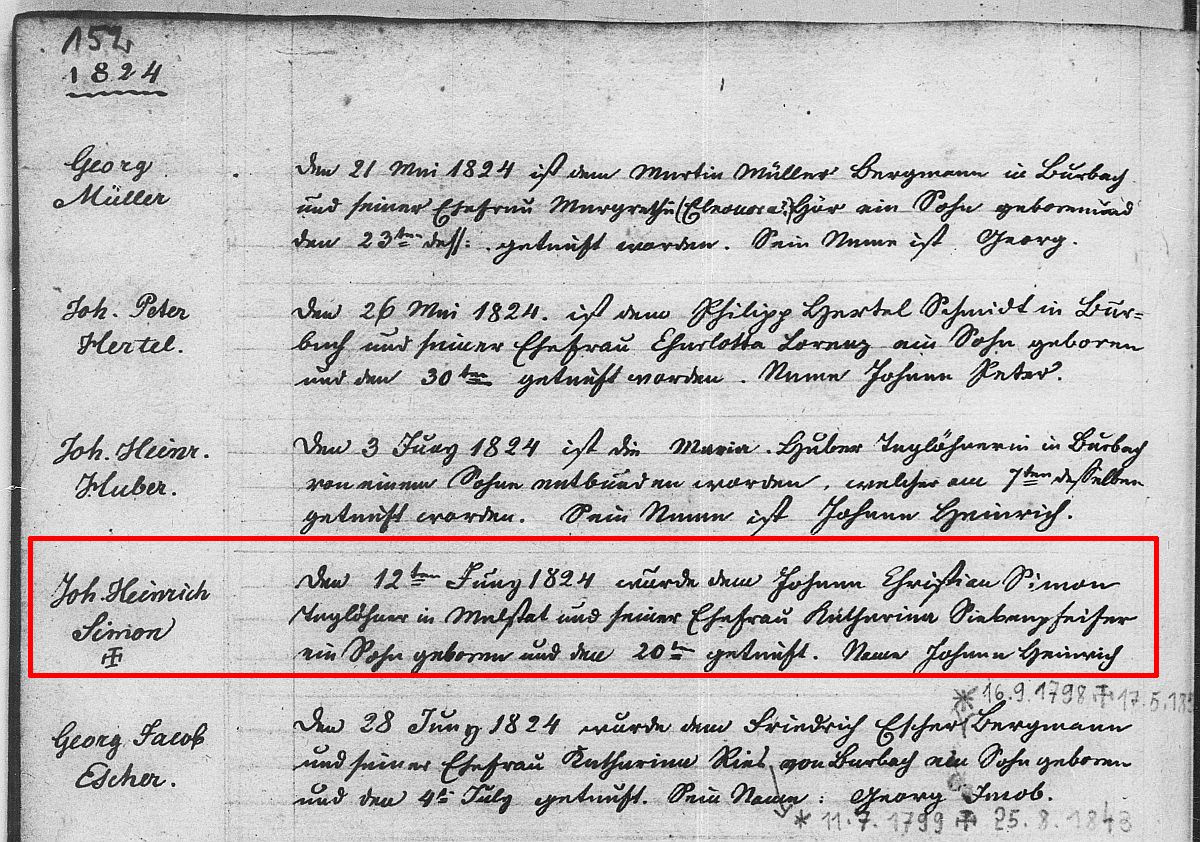 152
1824
Georg
Müller
Den 21 Mai 1824 ist dem Martin Müller Bergmann in Burbach
und seiner Ehefrau Margretha (Eleonora) Hör ein Sohn geboren und
den 23ten dess: getauft worden. Sein Name ist Georg.
Joh. Peter
Hertel.
Den 26 Mai 1824. ist dem Philipp Hertel Schmidt in Bur=
bach und seiner Ehefrau Charlotta Lorenz ein Sohn geboren
und den 30ten getauft worden. Name Johann Peter.
Joh. Heinr.
Huber.
Den 3 Juny 1824 ist die Maria Huber Taglöhnerin in Burbach
von einem Sohne entbunden worden, welcher am 7ten desselben
getauft worden. Sein Name ist Johann Heinrich.
Joh. Heinrich
Simon
Den 12ten Juny 1824 wurde dem Johann Christian Simon
Taglöhner in Malstat und seiner Ehefrau Katharina Siebenpfeifer
ein Sohn geboren und den 20ten getauft. Name Johann Heinrich
* 16.9.1798 ‡ 17.5.18
Georg Jacob
Escher.
Den 28 Juny 1824 wurde dem Friedrich Escher Bergmann
und seiner Ehefrau Katharina Ries von Burbach ein Sohn geboren
und den 4ten July getauft. Sein Name: Georg Jacob.
* 11.7.1799 ‡ 25.8.1843